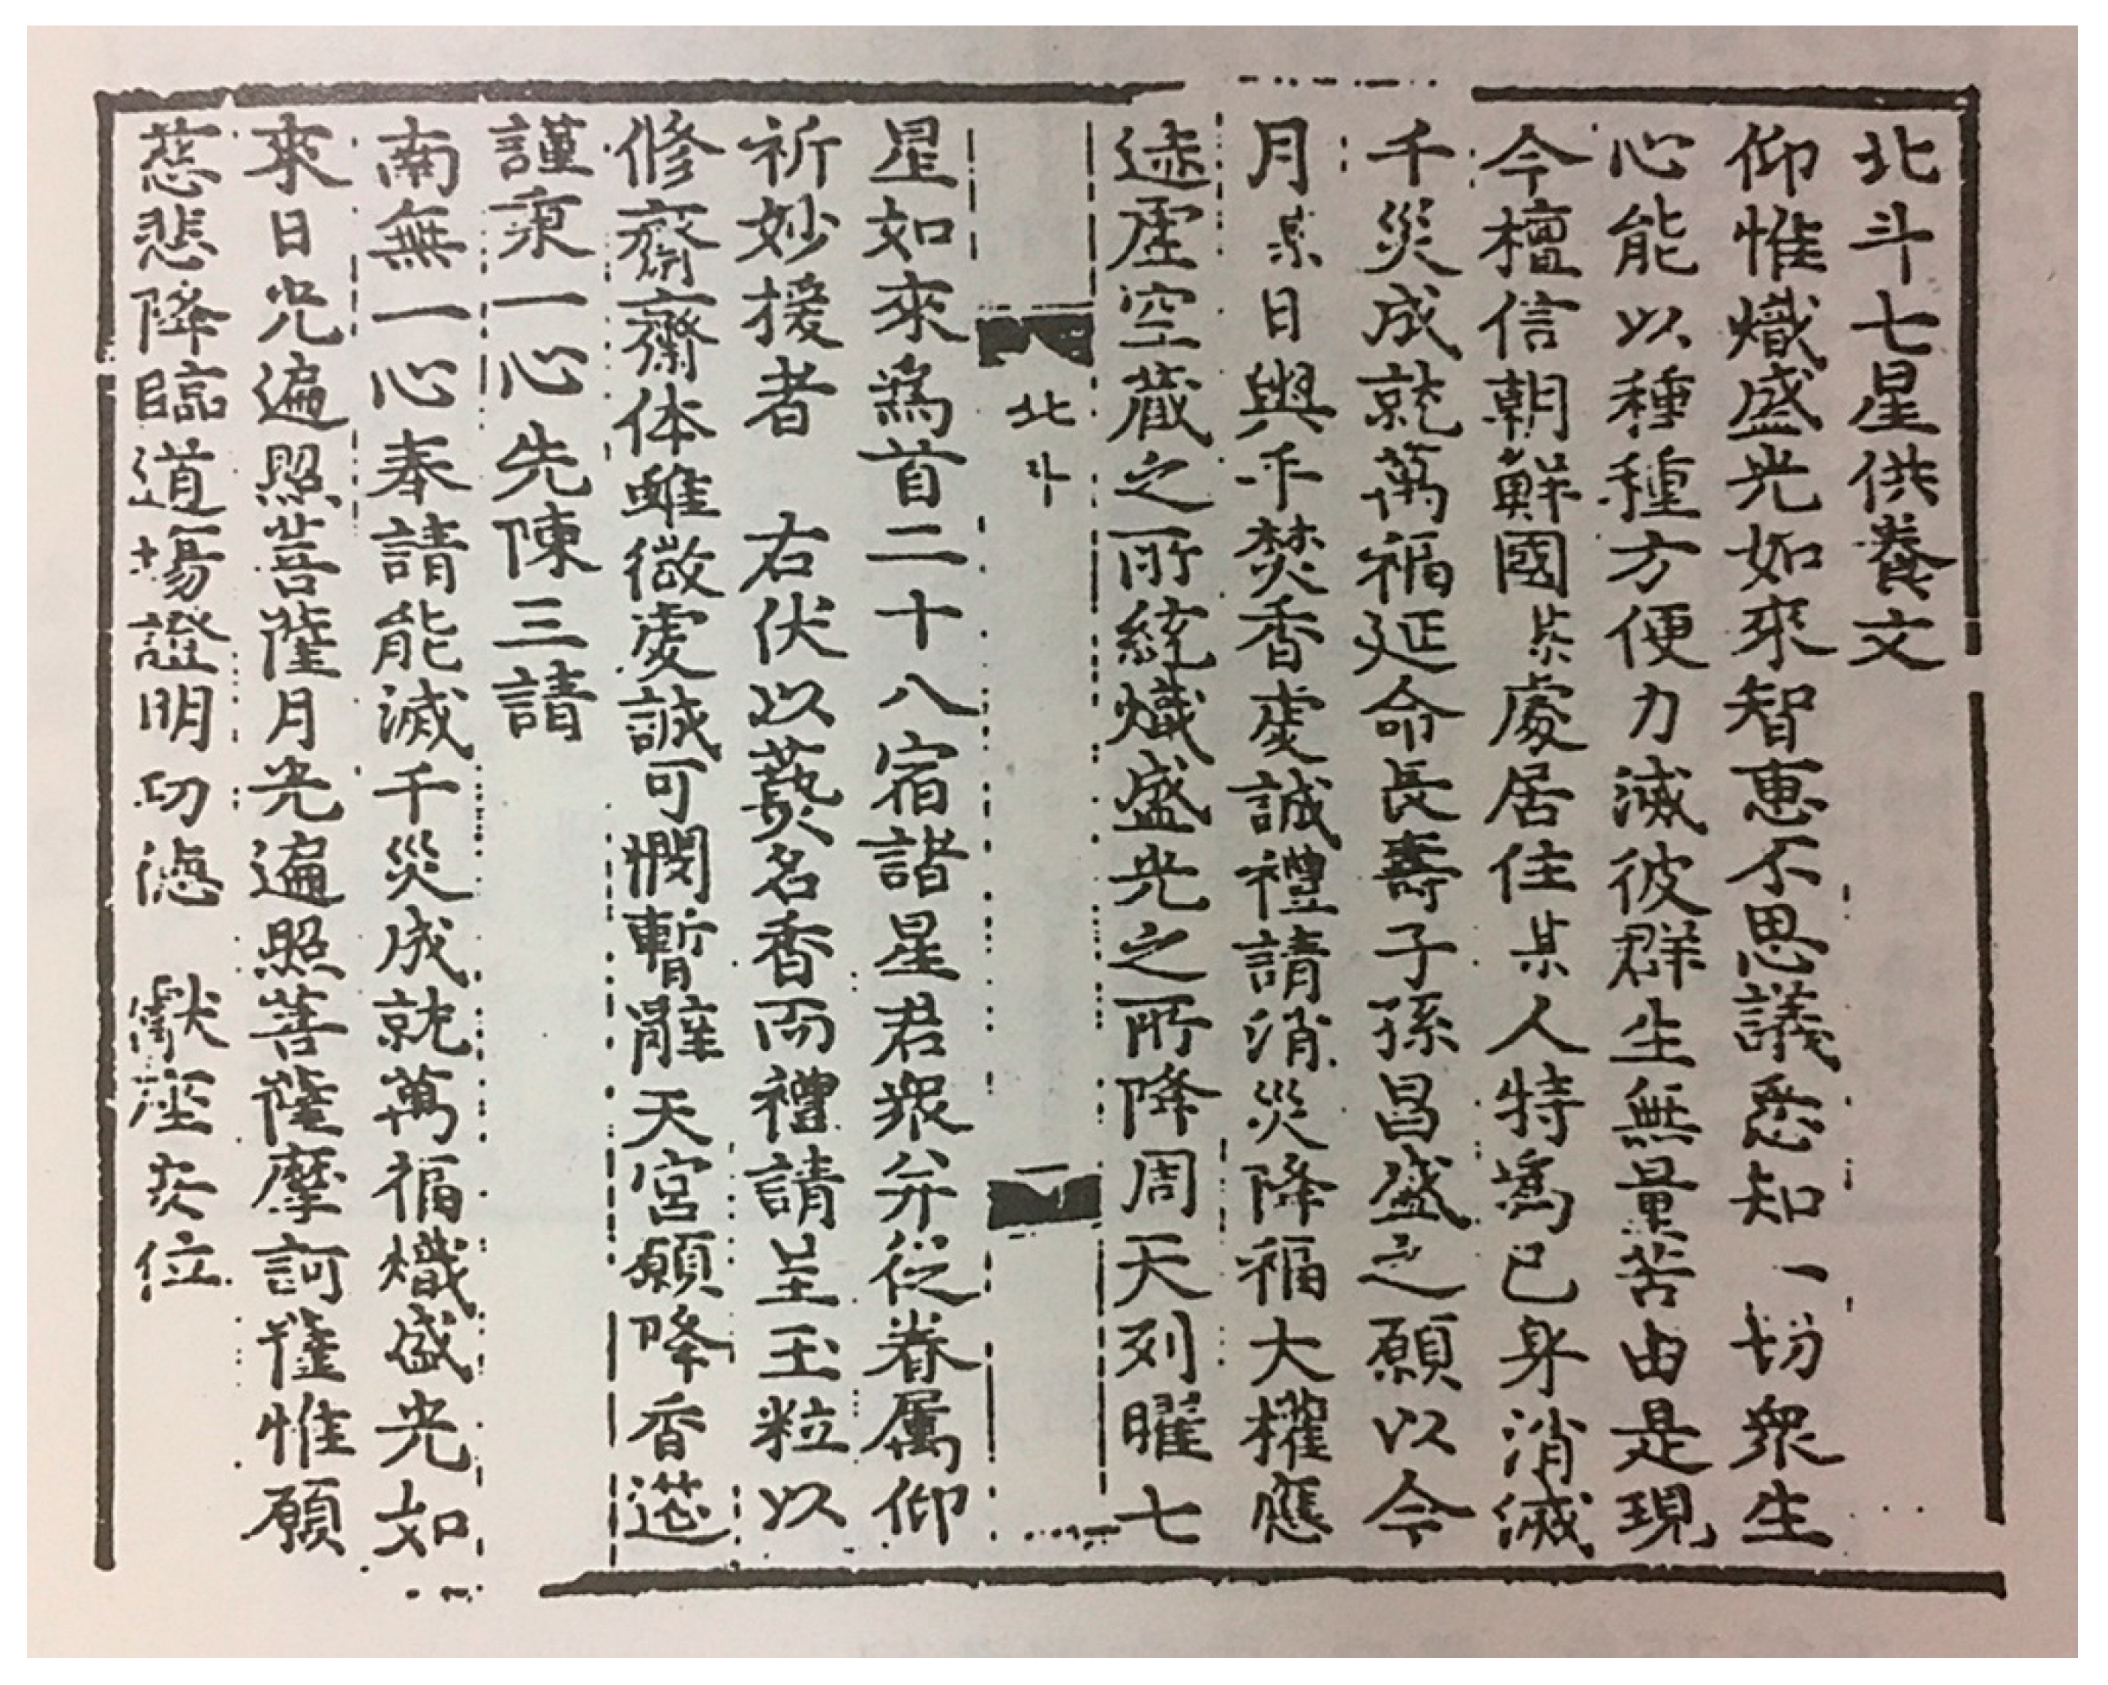 北斗七星供養文
仰惟熾盛光如來智恵不思議悉知一切衆生
心能以種種方便力滅彼群生無量苦由是現
今檀信朝鮮國某處居住某人特爲已身消滅
千災成就萬福延命長壽子孫昌盛之願以今
月某日與乎焚香虔誠禮請消災降福大權應
迹虛空藏之所統熾盛光之所降周天列曜七
北斗
星如來爲首二十八宿諧星君衆并從眷属仰
祈妙援者 右伏以爇名香而禮請呈玉粒以
修齋齋体雖微虔誠可憫暫離天宮願降香筵
謹秉一心先陳三請
南無一心奉請能滅千災成就萬福熾盛光如
來日光遍照菩薩月光遍照菩薩摩訶薩惟願
慈悲降臨道場證明功德 獻座䒶位